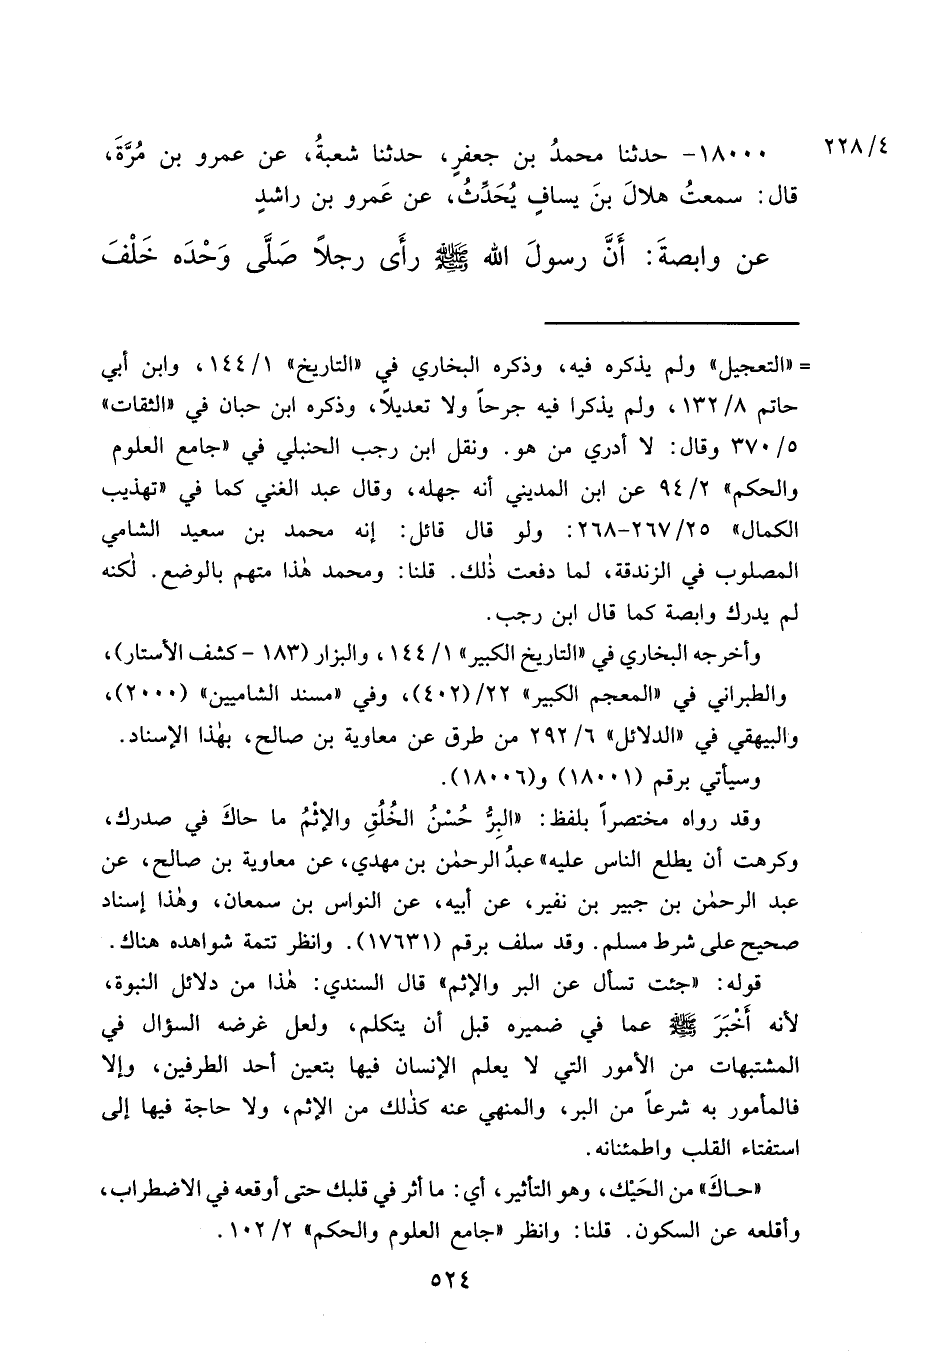 ٢٢٨/٤
١٨٠٠٠- حدثنا محمدُ بن جعفرٍ، حدثنا شعبةُ، عن عمرو بن مُرَّةَ،
قال: سمعتُ هلالَ بنَ يسافٍ يُحَدِّثُ، عن عَمرو بن راشدٍ
عن وابصةَ: أَنَّ رسولَ الله ﷺ رأَى رجلاً صَلَّى وَحْدَه خَلْفَ
= «التعجيل» ولم يذكره فيه، وذكره البخاري في «التاريخ» ١٤٤/١، وابن أبي
حاتم ١٣٢/٨، ولم يذكرا فيه جرحاً ولا تعديلاً، وذكره ابن حبان في «الثقات»
٣٧٠/٥ وقال: لا أدري من هو. ونقل ابن رجب الحنبلي في «جامع العلوم
والحكم» ٩٤/٢ عن ابن المديني أنه جهله، وقال عبد الغني كما في «تهذيب
الكمال» ٢٦٧/٢٥-٢٦٨: ولو قال قائل: إنه محمد بن سعيد الشامي
المصلوب في الزندقة، لما دفعت ذٰلك. قلنا: ومحمد هٰذا متهم بالوضع. لٰكنه
لم يدرك وابصة كما قال ابن رجب.
وأخرجه البخاري في «التاريخ الكبير» ١٤٤/١، والبزار (١٨٣ - كشف الأستار)،
والطبراني في «المعجم الكبير» ٢٢/(٤٠٢)، وفي «مسند الشاميين» (٢٠٠٠)،
والبيهقي في «الدلائل» ٢٩٢/٦ من طرق عن معاوية بن صالح، بهٰذا الإسناد.
وسيأتي برقم (١٨٠٠١) و(١٨٠٠٦).
وقد رواه مختصراً بلفظ: «البِرُّ حُسْنُ الخُلُقِ والإثْمُ ما حاكَ في صدرك،
وكرهت أن يطلع الناس عليه» عبدُ الرحمٰن بن مهدي، عن معاوية بن صالح، عن
عبد الرحمٰن بن جبير بن نفير، عن أبيه، عن النواس بن سمعان، وهٰذا إسناد
صحيح على شرط مسلم. وقد سلف برقم (١٧٦٣١). وانظر تتمة شواهده هناك.
قوله: «جئت تسأل عن البر والإثم» قال السندي: هٰذا من دلائل النبوة،
لأنه أَخْبَرَ ﷺ عما في ضميره قبل أن يتكلم، ولعل غرضه السؤال في
المشتبهات من الأمور التي لا يعلم الإنسان فيها بتعين أحد الطرفين، وإلا
فالمأمور به شرعاً من البر، والمنهي عنه كذٰلك من الإثم، ولا حاجة فيها إلى
استفتاء القلب واطمئنانه.
«حـاكَ» من الحَيْك، وهو التأثير، أي: ما أثر في قلبك حتى أوقعه في الاضطراب،
وأقلعه عن السكون. قلنا: وانظر «جامع العلوم والحكم» ١٠٢/٢.
٥٢٤